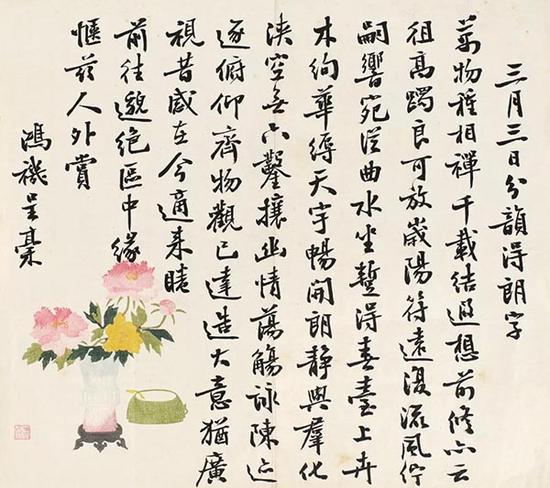 三月三日分韻得朗字
萬物種相禪千載結遐想前修亦云
徂高躅良可放歲陽符遠流風佇
嗣響宛從曲水坐暫得臺上卉
木絢華縟天宇暢開朗靜與羣化
浹空無六鑿攘幽情蕩觴詠陳迹
遂俯仰齊物觀已達造大意猶廣
視昔感在今適來
前往邈絕區中緣
愜茲人外賞
鴻禨呈稾